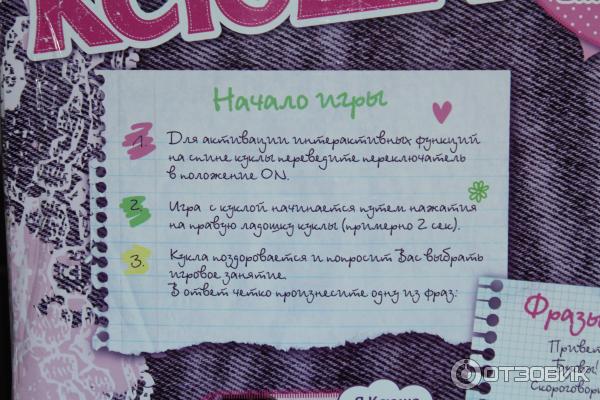 Начало игры
1. Для активации интерактивных функций
на спине куклы переведите переключатель
в положение ON.
2. Игра с куклой начинается путем нажатия
на правую ладошку куклы (примерно 2 сек).
3. Кукла поздоровается и попросит Вас выбрать
игровое занятие.
В ответ четко произнесите одну из фраз:
Фразы
Привет
Буквы!
Скороговор
Я Ксюша
ОТЗОВИК